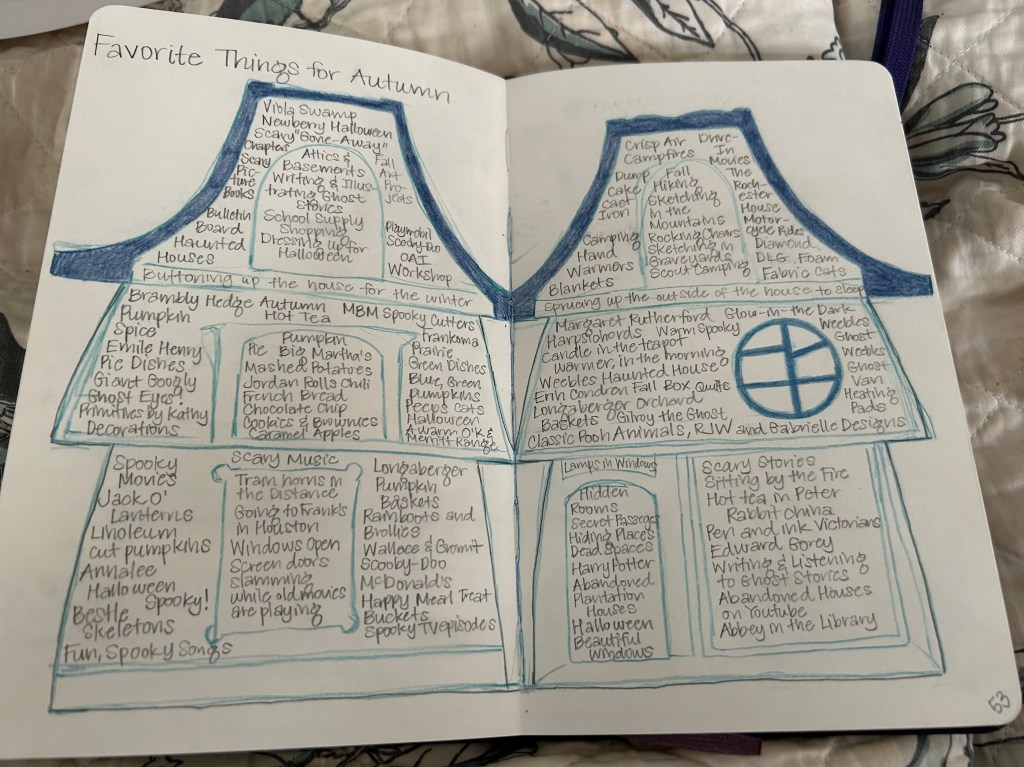 Favorite Things for Autumn
Viola Swamp
Newberry Halloween
Scary "Gone-Away"
Chapters
Scary
Pic-
ture
Books
Bulletin
Board
Haunted
Houses
Attics &
Basements
Writing & Illus-
trating Ghost
Stories
School Supply
Shopping
Dressing up for
Halloween
Fall
Art
Pro-
jects
Playmobil
Scooby-Doo
OAI
Workshop
Buttoning up the house for the winter
Brambly Hedge Autumn MBM Spooky Cutters
Pumpkin Hot Tea
Spice
Emile Henry
Pie Dishes
Giant Googly
Ghost Eyes
Primitives by Kathy
Decorations
Pumpkin
Pie Big Martha's
Mashed Potatoes
Jordan Rolls Chili
French Bread
Chocolate Chip
Cookies & Brownies
Caramel Apples
Frankoma
Prairie
Green Dishes
Blue, Green
Pumpkins
Peeps Cats
Halloween
& Warm O'K &
Merritt Range
Spooky
Movies
Jack O'
Lanterns
Linoleum
cut pumpkins
Annalee
Halloween
Spooky!
Beistle
Skeletons
Fun, Spooky Songs
Scary Music
Train horns in
the Distance
Going to Frankl's
in Houston
Windows Open
Screen doors
slamming
while old movies
are playing
Longaberger
Pumpkin
Baskets
Rainboots and
Brollies
Wallace & Gromit
Scooby-Doo
McDonald's
Happy Meal Treat
Buckets
Spooky TV episodes
Crisp Air
Campfires
Dump
Cake
Cast
Iron
Camping
Hand
Warmers
Blankets
Fall
Hiking
Sketching
in the
Mountains
Rocking Chairs
Sketching in
Graveyards
Scout Camping
Drive-
In
Movies
The
Roch-
ester
House
Motor-
cycle Rides
Diamond
DLG. Foam
Fabric Cats
Sprucing up the outside of the house to sleep
Margaret Rutherford Glow-in-the Dark
Harpsichords Warm Spooky
Candle in the teapot
warmer, in the morning
Weebles Haunted House
Erin Condren Fall Box, Quilts
Longaberger Orchard
Baskets Gilroy the Ghost
Classic Pooh Animals, RJW and Gabrielle Designs
Weebles
Ghost
Weebles
Ghost
Van
Heating
Pads
Lamps in Windows
Hidden
Rooms
Secret Passages
Hiding Places
Dead Spaces
Harry Potter
Abandoned
Plantation
Houses
Halloween
Beautiful
Windows
Scary Stories
Sitting by the Fire
Hot tea in Peter
Rabbit china
Pen and ink Victorians
Edward Gorey
Writing & Listening
to Ghost Stories
Abandoned Houses
on Youtube
Abbey in the Library
53